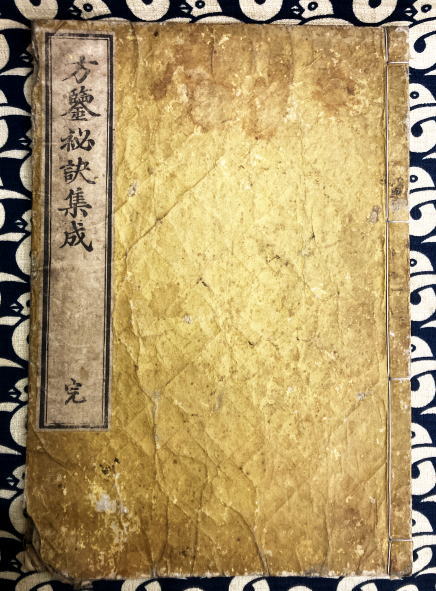 方鑒秘訣集成
完